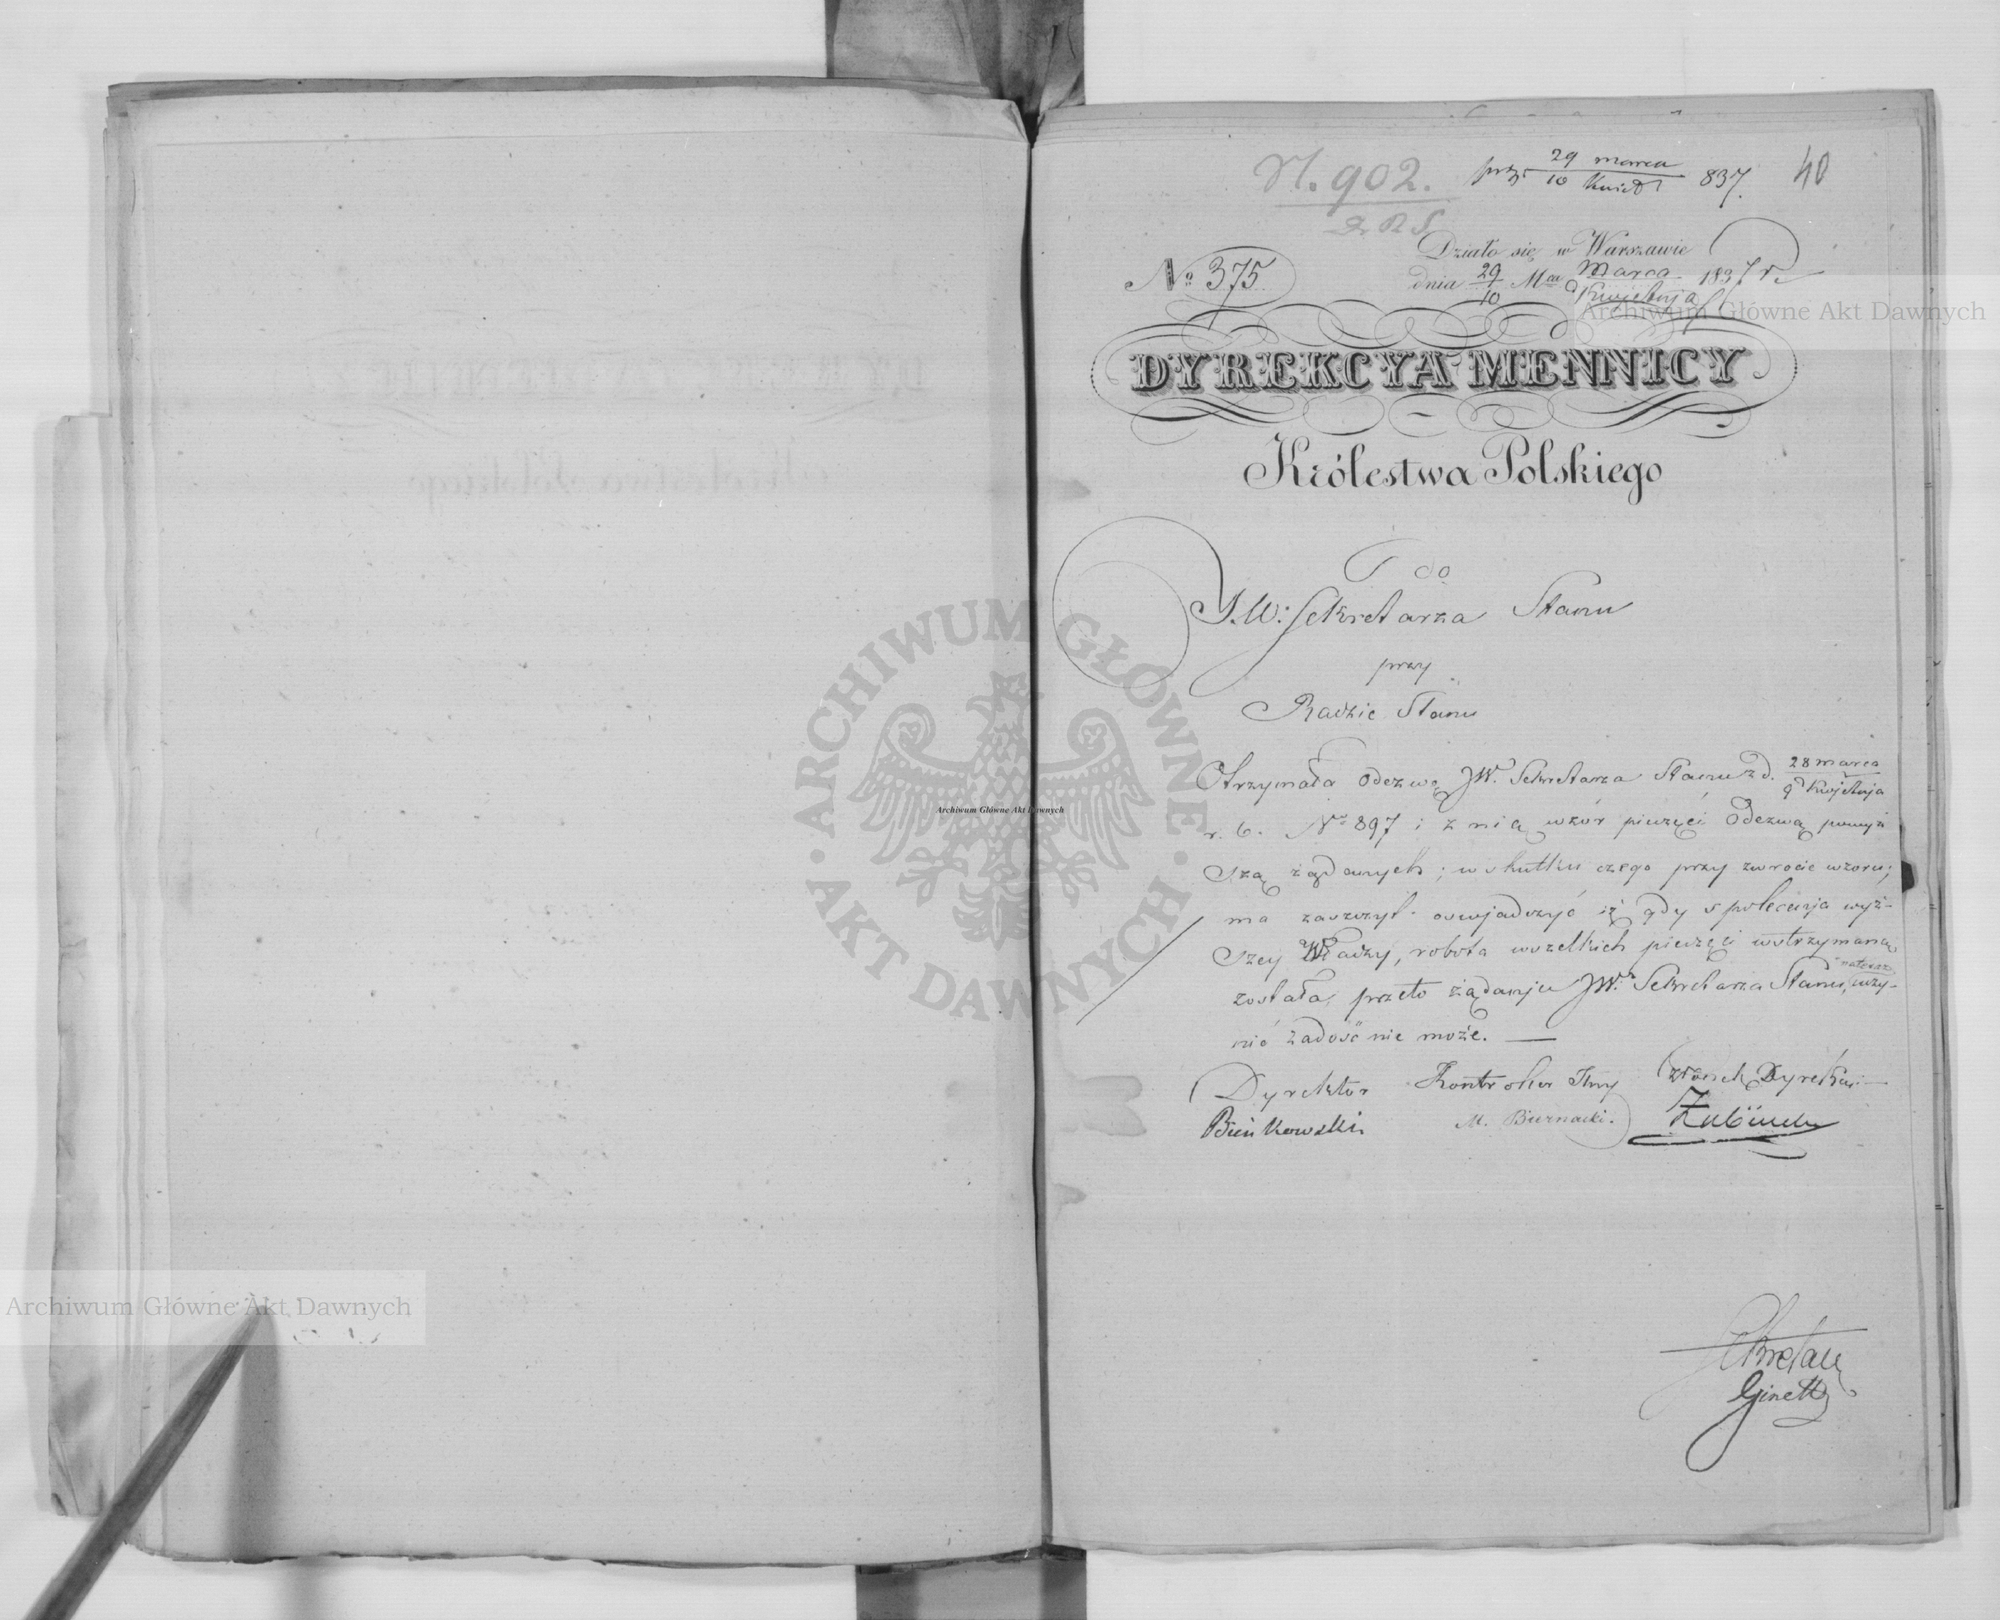 N. 902.
prz. 29 marca / 10 Kwiet 837.
40
D. R. S.
Działo się w Warszawie
No 375
dnia 29/10 Mca Marca/Kwietnia 1837 r.
DYREKCYA MENNICY
Królestwa Polskiego
do
J.W: Sekretarza Stanu
przy
Radzie Stanu
Otrzymała odezwę JW. Sekretarza Stanu z d. 28 marca / 9 Kwjetnja
r. b. No 897 i z nią wzór pieczęci Odezwą powyż
szą żądanych; w skutku czego przy zwrocie wzoru;
ma zaszczyt oswjadczyć iż gdy s polecenja wyż-
szey Władzy, robota wszelkich pieczęci wstrzymaną
została, przeto żądanju JW. Sekretarza Stanu, "nateraz" uczy-
nić zadość nie może. —
Dyrektor Kontroler Jlny Członek Dyrekcii
Bieńkowski M. Biernacki.
Sekretarz
Archiwum Główne Akt Dawnych
Archiwum Główne Akt Dawnych
Archiwum Główne Akt Dawnych
ARCHIWUM GŁÓWNE · AKT DAWNYCH ·